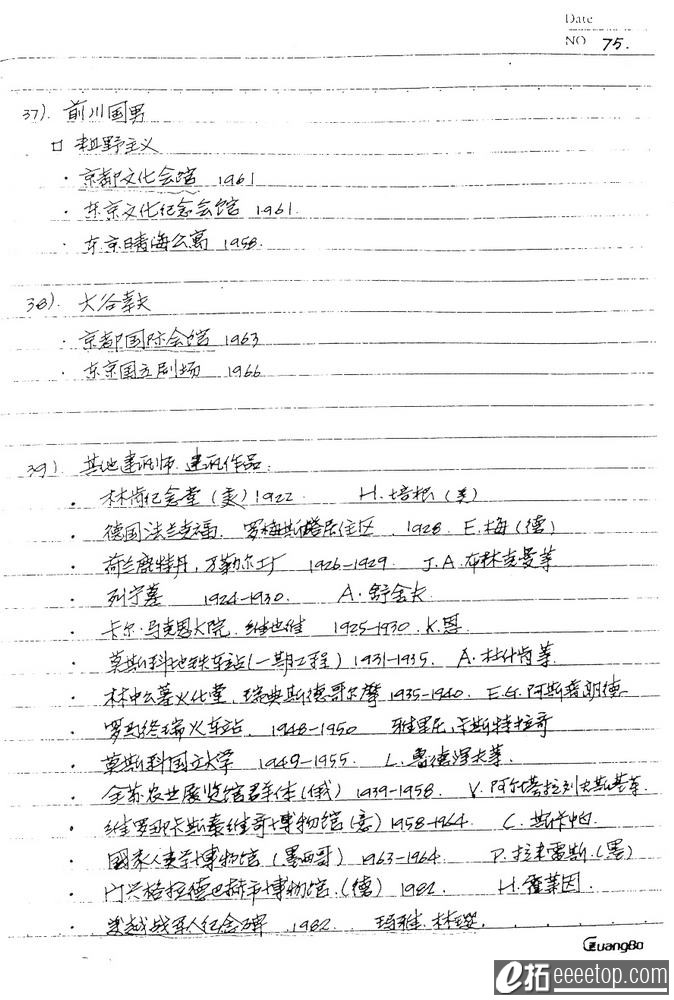 Date
NO 75.
37). 前川国男
□ 粗野主义
· 京都文化会馆 1961
· 东京文化纪念会馆 1961.
· 东京晴海公寓 1958.
38). 大谷幸夫
· 京都国际会馆 1963
· 东京国立剧场 1966
39). 其他建筑师.建筑作品:
· 林肯纪念堂(美)1922 H.培根(美)
· 德国法兰克福. 罗梅斯塔居住区. 1928. E.梅(德)
· 荷兰鹿特丹,万勒尔工厂 1926-1929. J.A.布林克曼等
· 列宁墓 1924-1930. A.舒舍夫
· 卡尔·马克思大院.维也纳 1925-1930.K.恩
· 莫斯科地铁车站(一期工程)1931-1935. A.杜什肯等
· 林中公墓火化堂,瑞典斯德哥尔摩1935-1940. E.G.阿斯普朗德
· 罗马终端火车站. 1948-1950 卡斯特拉哥
· 莫斯科国立大学 1949-1955. L.鲁德涅夫等.
· 全苏农业展览馆群体(俄)1939-1958. V.阿尔塔拉列夫斯基等
· 维罗那卡斯泰维哥博物馆(意)1958-1964. C.斯卡帕.
· 國家人类学博物馆(墨西哥)1963-1964. P.拉米雷斯.(墨)
· 门兴格拉德巴赫市博物馆.(德)1982. H.霍莱因.
· 美越战军人纪念碑 1982. 玛雅.林璎.
GuangBo
e拓 eeeetop.com